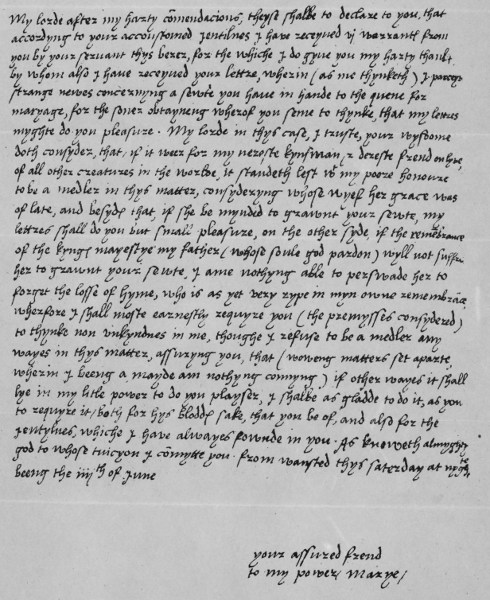 My lorde after my harty cōmendacions, theyse shalbe to declare to you, that
accordyng to your accustomed jentilnes I have receyued vj warrantf from
you by your servant thys berer, for the whiche I do gyue you my harty thankf.
by whom also I have receyued your lettre, wherin (as me thynketh) I perceyve
strange newes concernyng a sewte you have in hande to the quene for
maryage, for the soner obtaynēg wherof you seme to thynke, that my lettres
myghte do you pleasure. My lorde in thys case, I truste, your wysdome
doth consyder, that, if it weer for my nereste kynsman & dereste frend on lyve,
of all other creatures in the worlde, it standeth lest wt my poore honoure
to be a medler in thys matter, consyderyng whose wyef her grace was
of late, and besydf that if she be mynded to grawnt your sewte, my
lettres shall do you but small pleasure. on the other syde, if the remēbrance
of the kyngf mayestye my father (whose soule god pardon) wyll not suffre
her to grawnt your sewte, I ame nothyng able to perswade her to
forget the losse of hyme, who is as yet very rype in myn owne remembrāce
wherfore I shall moste earnestly requyre you (the premyssef consydered)
to thynke non vnkyndnes in me, thoughe I refuse to be a medler any
wayes in thys matter, assuryng you, that (woweng matters set aparte,
wherin I beeng a mayde am nothyng connyng) if other wayes it shall
lye in my litle power to do you playser, I shalbe as gladde to do it, as you
to requyre it, both for hys bloddf sake, that you be of, and also for the
jentylnes, whiche I have alwayes fownde in you. As knoweth almyghty
god to whose tuicyon I cōmytte you. from wansted thys saterday at nyghte
beeng the iiijth of June
your assured frend
to my power Marye